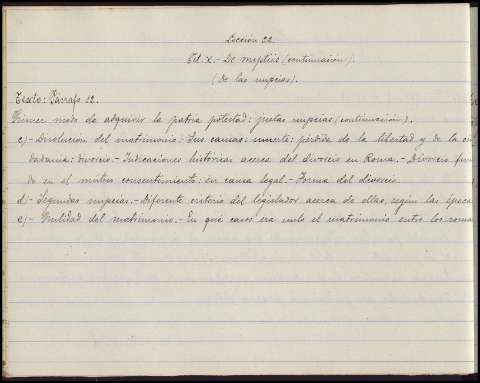 Lección 22.
Tit. X.- De nuptiis (continuación).
(De las nupcias).
Texto: Párrafo 12.
Primer modo de adquirir la patria potestad: justas nupcias (continuación).
c)- Disolución del matrimonio: Sus causas: muerte: pérdida de la libertad y de la ciu
dadanía: divorcio.- Indicaciones históricas acerca del divorcio en Roma.- Divorcio funda
do en el mutuo consentimiento: en causa legal.- Forma del divorcio.
d)- Segundas nupcias.- Diferente criterio del legislador acerca de ellas, según las época
e)- Nulidad del matrimonio.- En qué casos era nulo el matrimonio entre los roma